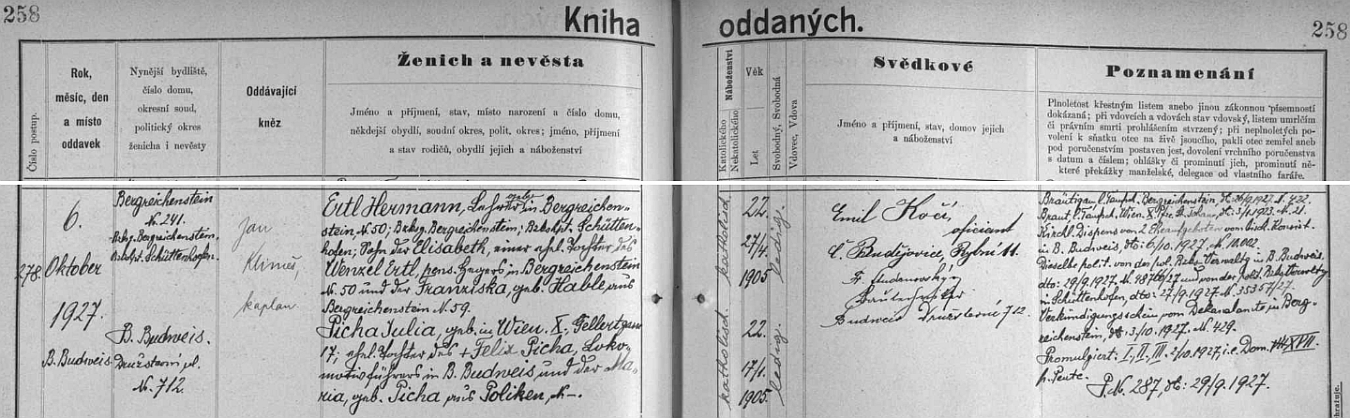 258
Kniha oddaných.
258
Číslo postup.
Rok,
měsíc, den
a místo
oddavek
Nynější bydliště,
číslo domu,
okresní soud,
politický okres
ženicha i nevěsty
Oddávající
kněz
Ženich a nevěsta
Jméno a příjmení, stav, místo narození a číslo domu,
někdejší obydlí, soudní okres, polit. okres; jméno, příjmení
a stav rodičů, obydlí jejich a náboženství
Náboženství
Katolického
Nekatolického
Věk
Let
Svobodný, Svobodná
Vdovec, Vdova
Svědkové
Jméno a příjmení, stav, domov jejich
a náboženství
Poznamenání
Plnoletost křestným listem anebo jinou zákonnou písemností
dokázaná; při vdovcích a vdovách stav vdovský, listem úmrtím
či právním smrti prohlášením stvrzený; při neplnoletých po-
volení k sňatku otce na živě jsoucího, pakli otec zemřel aneb
pod poručenstvím postaven jest, dovolení vrchního poručenstva
s datum a číslem; ohlášky či prominutí jich, prominutí ně-
které překážky manželské, delegace od vlastního faráře.
278.
6.
Oktober
1927.
B. Budweis
Bergreichenstein
N. 241.
Bergreichenstein
Schüttenhofen.
B. Budweis.
Družstevní ul.
N. 712
Jan
Klimeš,
kaplan
Ertl Hermann, Lehrer, geb. in Bergreichen-
stein N. 50; Bez. Bergreichenstein; Schütten-
hofen; Sohn der Elisabeth, einer ehl. Tochter des
Wenzel Ertl, pens. Hegers in Bergreichenstein
N. 50 und der Franziska, geb. Hable aus
Bergreichenstein N. 59.
Picha Julia, geb. in Wien. X., Gellertgasse
17; ehl. Tochter des + Felix Picha, Loko-
motivführers in B. Budweis und der Ma-
ria, geb. Picha aus Poliken, N –.
katholisch. katholisch.
22.
27/4
1905
ledig.
22.
17/1.
1905.
ledig.
Emil Kočí,
oficiant
Č. Budějovice, Rybní 11.
Fr.
Budweis Družstevní 712.
Bräutigam l. Taufsch. Bergreichenstein, N. 732.
Braut l. Taufsch. Wien. X. N. 21.
Kirchl. Dispens von 2 Konsist.
in B. Budweis, 6/10. 1927. N.
Dieselbe polit. von der pol. in B. Budweis
dto: 29/9. 1927. und von der polit.
in Schüttenhofen, dto: 27/9. 1927. N. 35357/27.
Verkündigungsschein vom Dekanalamte in Berg-
reichenstein, 3/10. 1927. N. 429.
Promulgiert: I., II., III. 2/10. 1927, i. e. Dom. XVII.
p. Pente.
P. N. 287, 29/9. 1927.